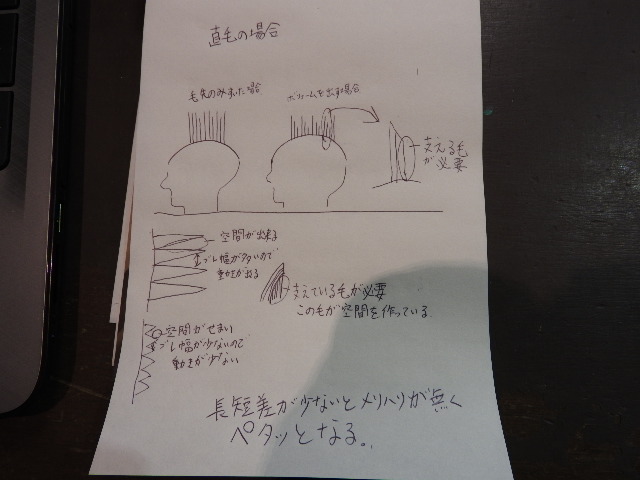 直毛の場合
毛先のみすいた場合
ボリュームを出す場合
支える毛
が必要
空間が出来る
ブレ幅が多いので
動きが出る
支えている毛が必要
この毛が空間を作っている
空間がせまい
ブレ幅が少ないので
動きが少ない
長短差が少ないとメリハリが無く
ペタッとなる。